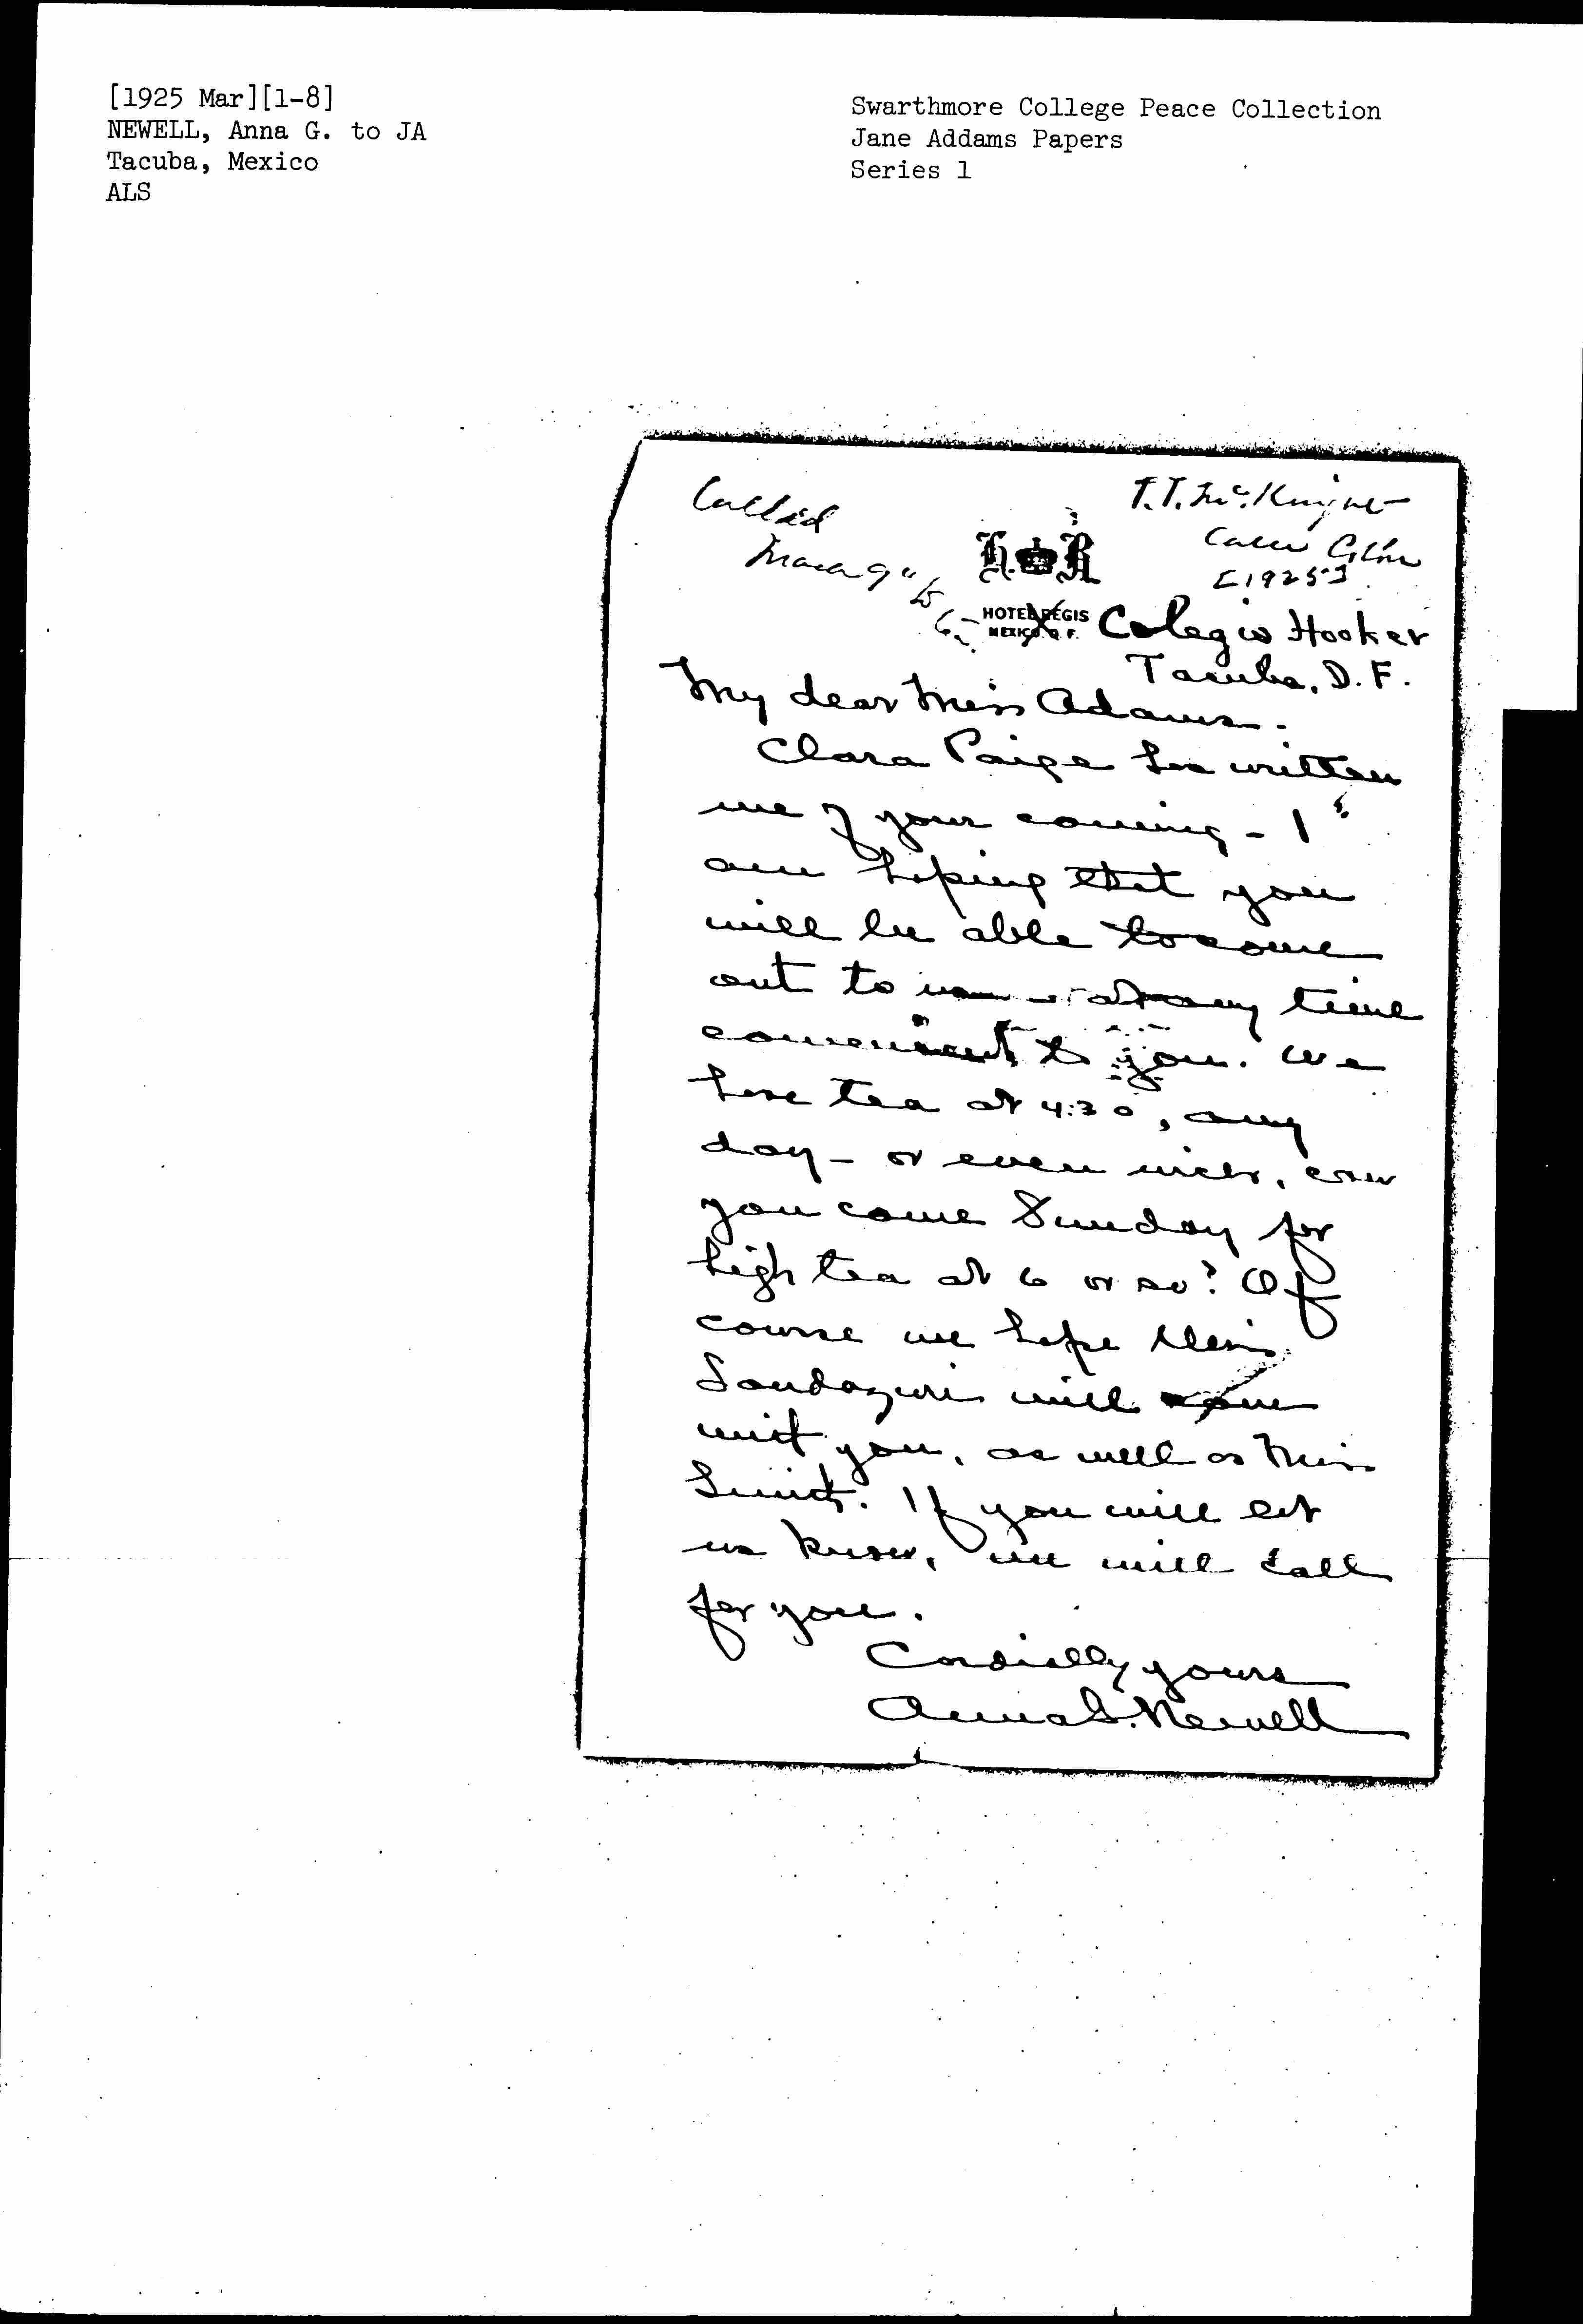 [1925 Mar][1-8]
NEWELL, Anna G. to JA
Tacuba, Mexico
ALS
Swarthmore College Peace Collection
Jane Addams Papers
Series 1
Called
T.T. McKnight
[1925]
H R
HOTEL REGIS
MEXICO D. F.
Colegio Hooker
Tacuba, D.F.
My dear Miss Adams.
Clara Paige has written
me of your coming - I
am hoping that you
will be able to come
out to us at any time
convenient to you. We
have tea at 4:30, any
day - or even nicer, can
you come Sunday for
high tea at 6 or so? Of
course we hope
will come
with you, as well as Miss
Smith. If you will let
us know, we will call
for you.
Cordially yours
Anna G. Newell